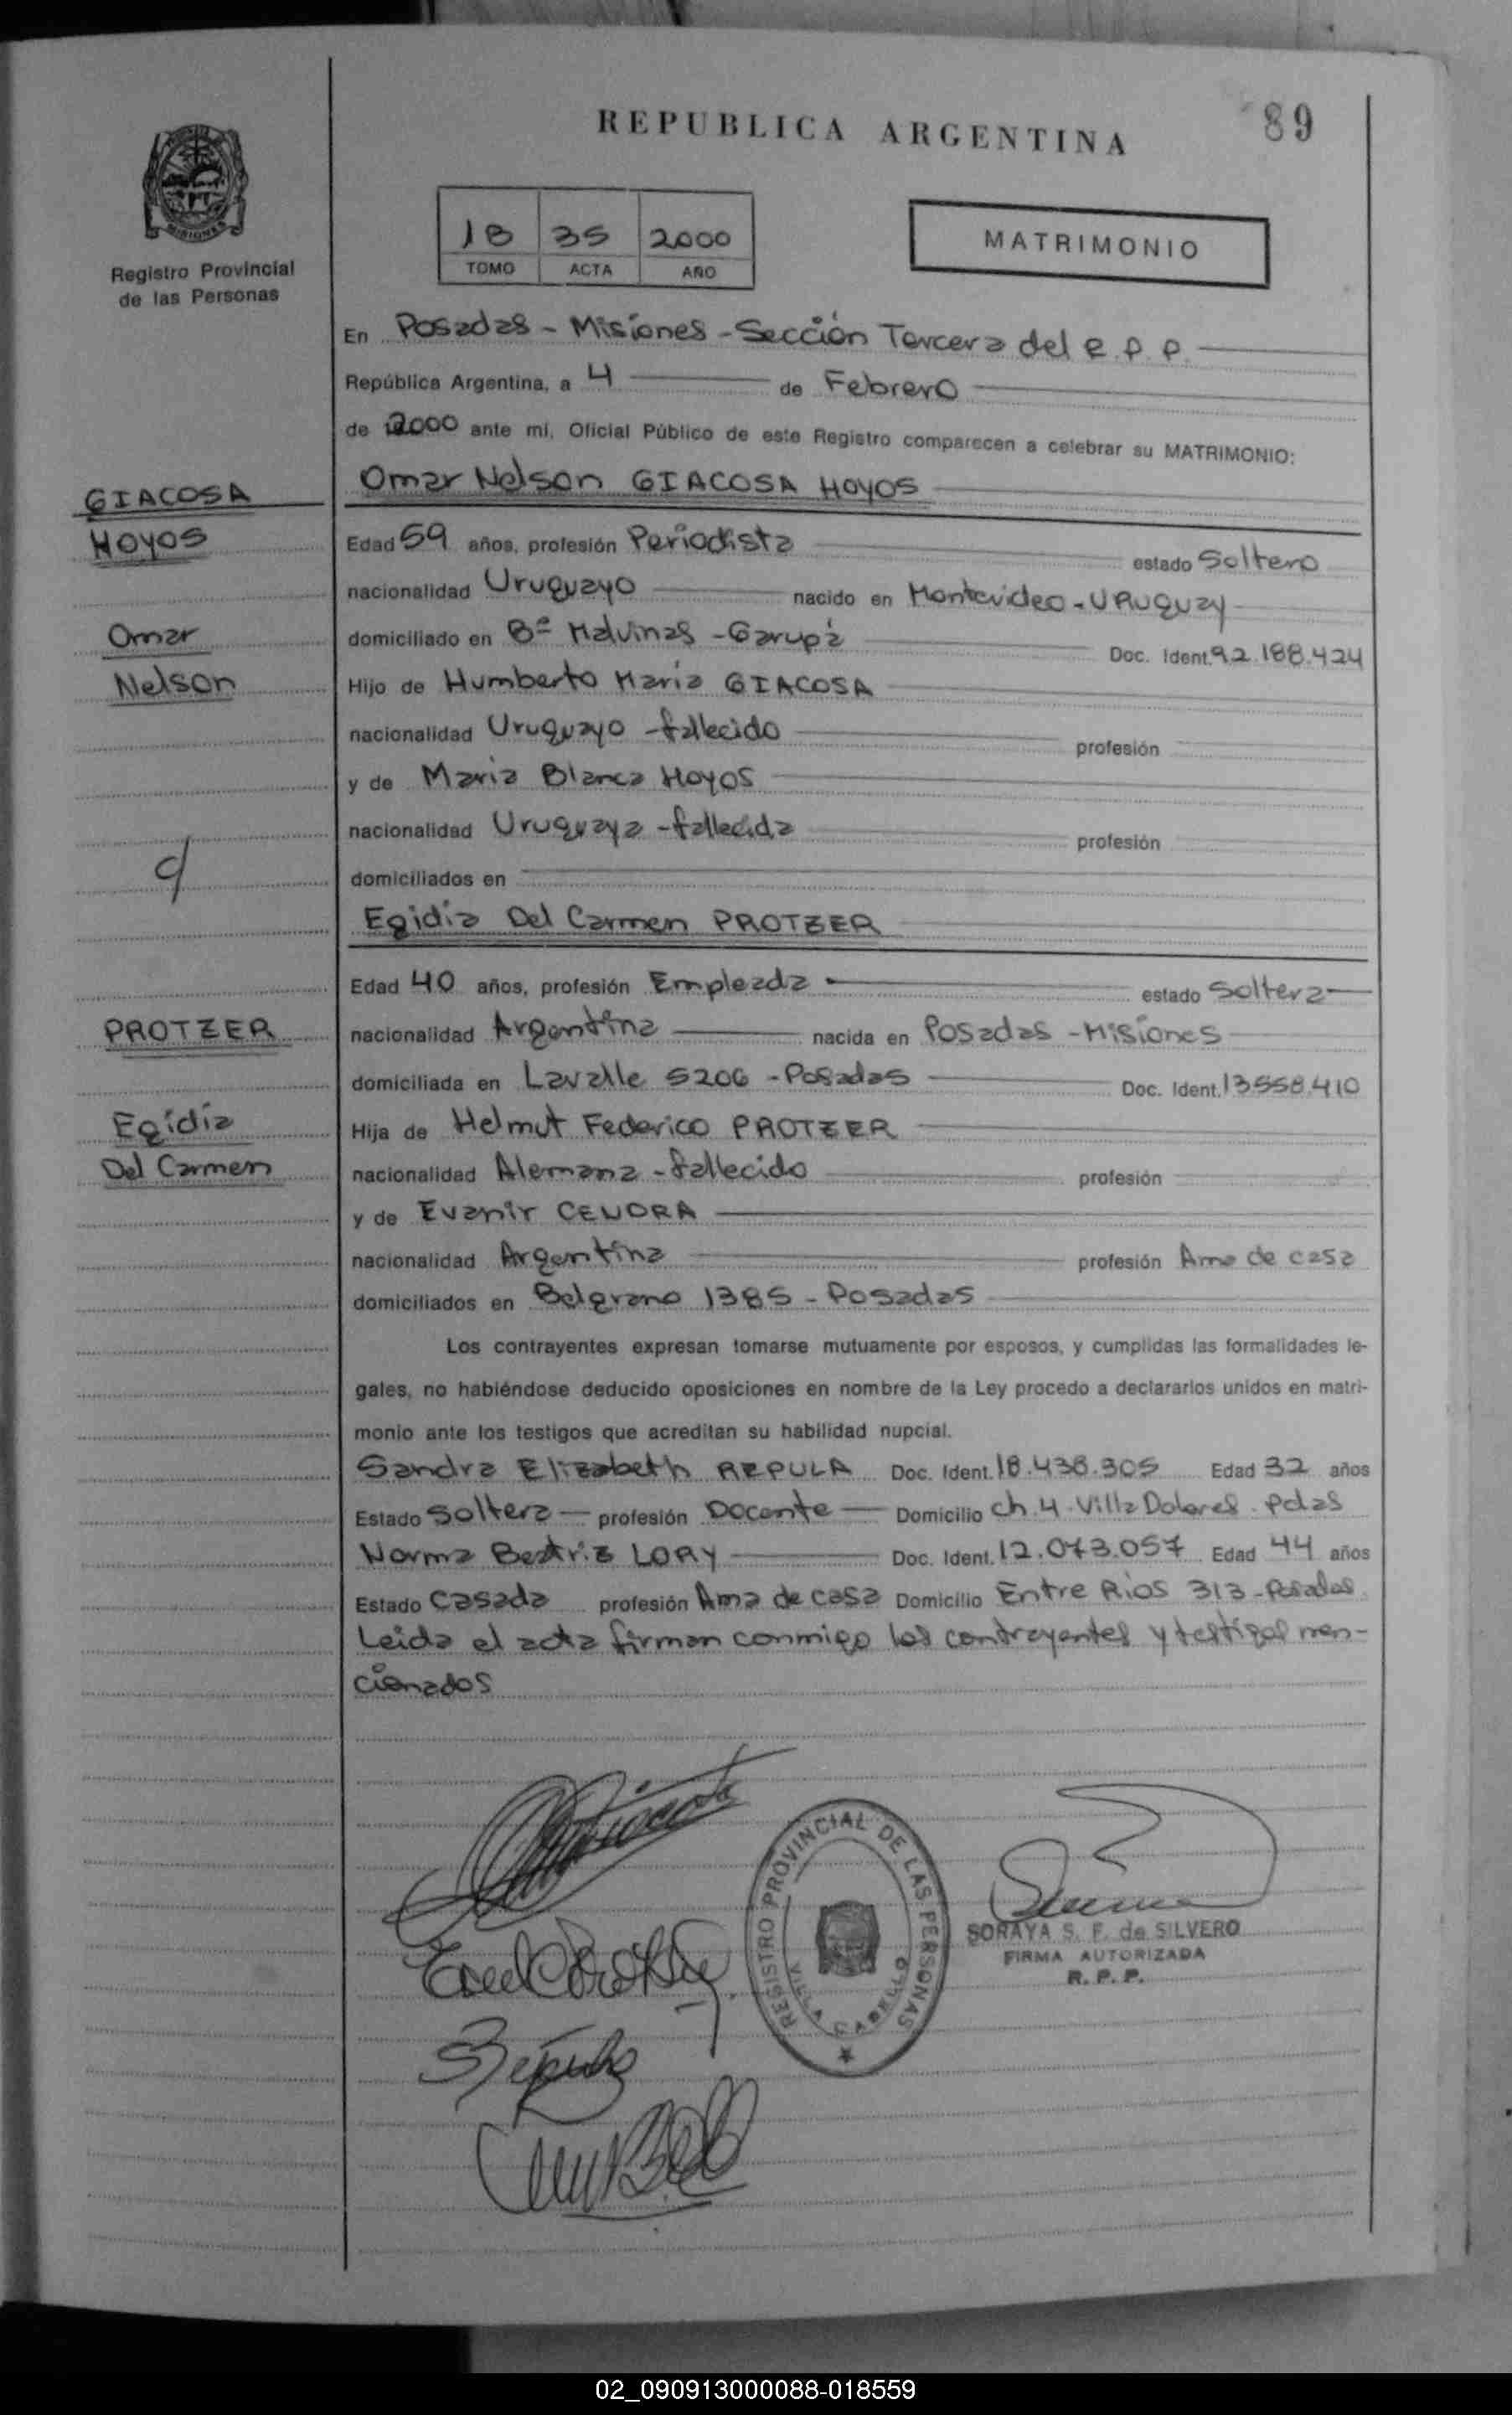 REPUBLICA ARGENTINA
89
MISIONES
Registro Provincial
de las Personas
1B 35 2000
TOMO ACTA AÑO
MATRIMONIO
En Posadas - Misiones - Sección Tercera del R.P.P.
República Argentina, a 4 de Febrero
de 2000 ante mí, Oficial Público de este Registro comparecen a celebrar su MATRIMONIO:
GIACOSA
HOYOS
Omar
Nelson
Omar Nelson GIACOSA HOYOS
Edad 59 años, profesión Periodista estado Soltero
nacionalidad Uruguayo nacido en Montevideo - URuguay
domiciliado en Bº Malvinas - Garupá Doc. Ident. 92.188.424
Hijo de Humberto Maria GIACOSA
nacionalidad Uruguayo - fallecido profesión
y de Maria Blanca Hoyos
nacionalidad Uruguaya - fallecida profesión
domiciliados en
c/
PROTZER
Egidia
Del Carmen
Egidia Del Carmen PROTZER
Edad 40 años, profesión Empleada estado Soltera
nacionalidad Argentina nacida en Posadas - Misiones
domiciliada en Lavalle 5206 - Posadas Doc. Ident. 13.558.410
Hija de Helmut Federico PROTZER
nacionalidad Alemana - fallecido profesión
y de Evanir CENDRA
nacionalidad Argentina profesión Ama de casa
domiciliados en Belgrano 1385 - Posadas
Los contrayentes expresan tomarse mutuamente por esposos, y cumplidas las formalidades le-
gales, no habiéndose deducido oposiciones en nombre de la Ley procedo a declararlos unidos en matri-
monio ante los testigos que acreditan su habilidad nupcial.
Sandra Elizabeth REPULA Doc. Ident. 18.438.305 Edad 32 años
Estado Soltera profesión Docente Domicilio Ch. 4 Villa Dolores - Pdas
Norma Beatriz LORY Doc. Ident. 12.073.057 Edad 44 años
Estado Casada profesión Ama de casa Domicilio Entre Rios 313 - Posadas
Leida el acta firman conmigo los contrayentes y testigos men-
cionados
REGISTRO PROVINCIAL DE LAS PERSONAS
VILLA CABELLO
SORAYA S. F. de SILVERO
FIRMA AUTORIZADA
R. P. P.
02_090913000088-018559